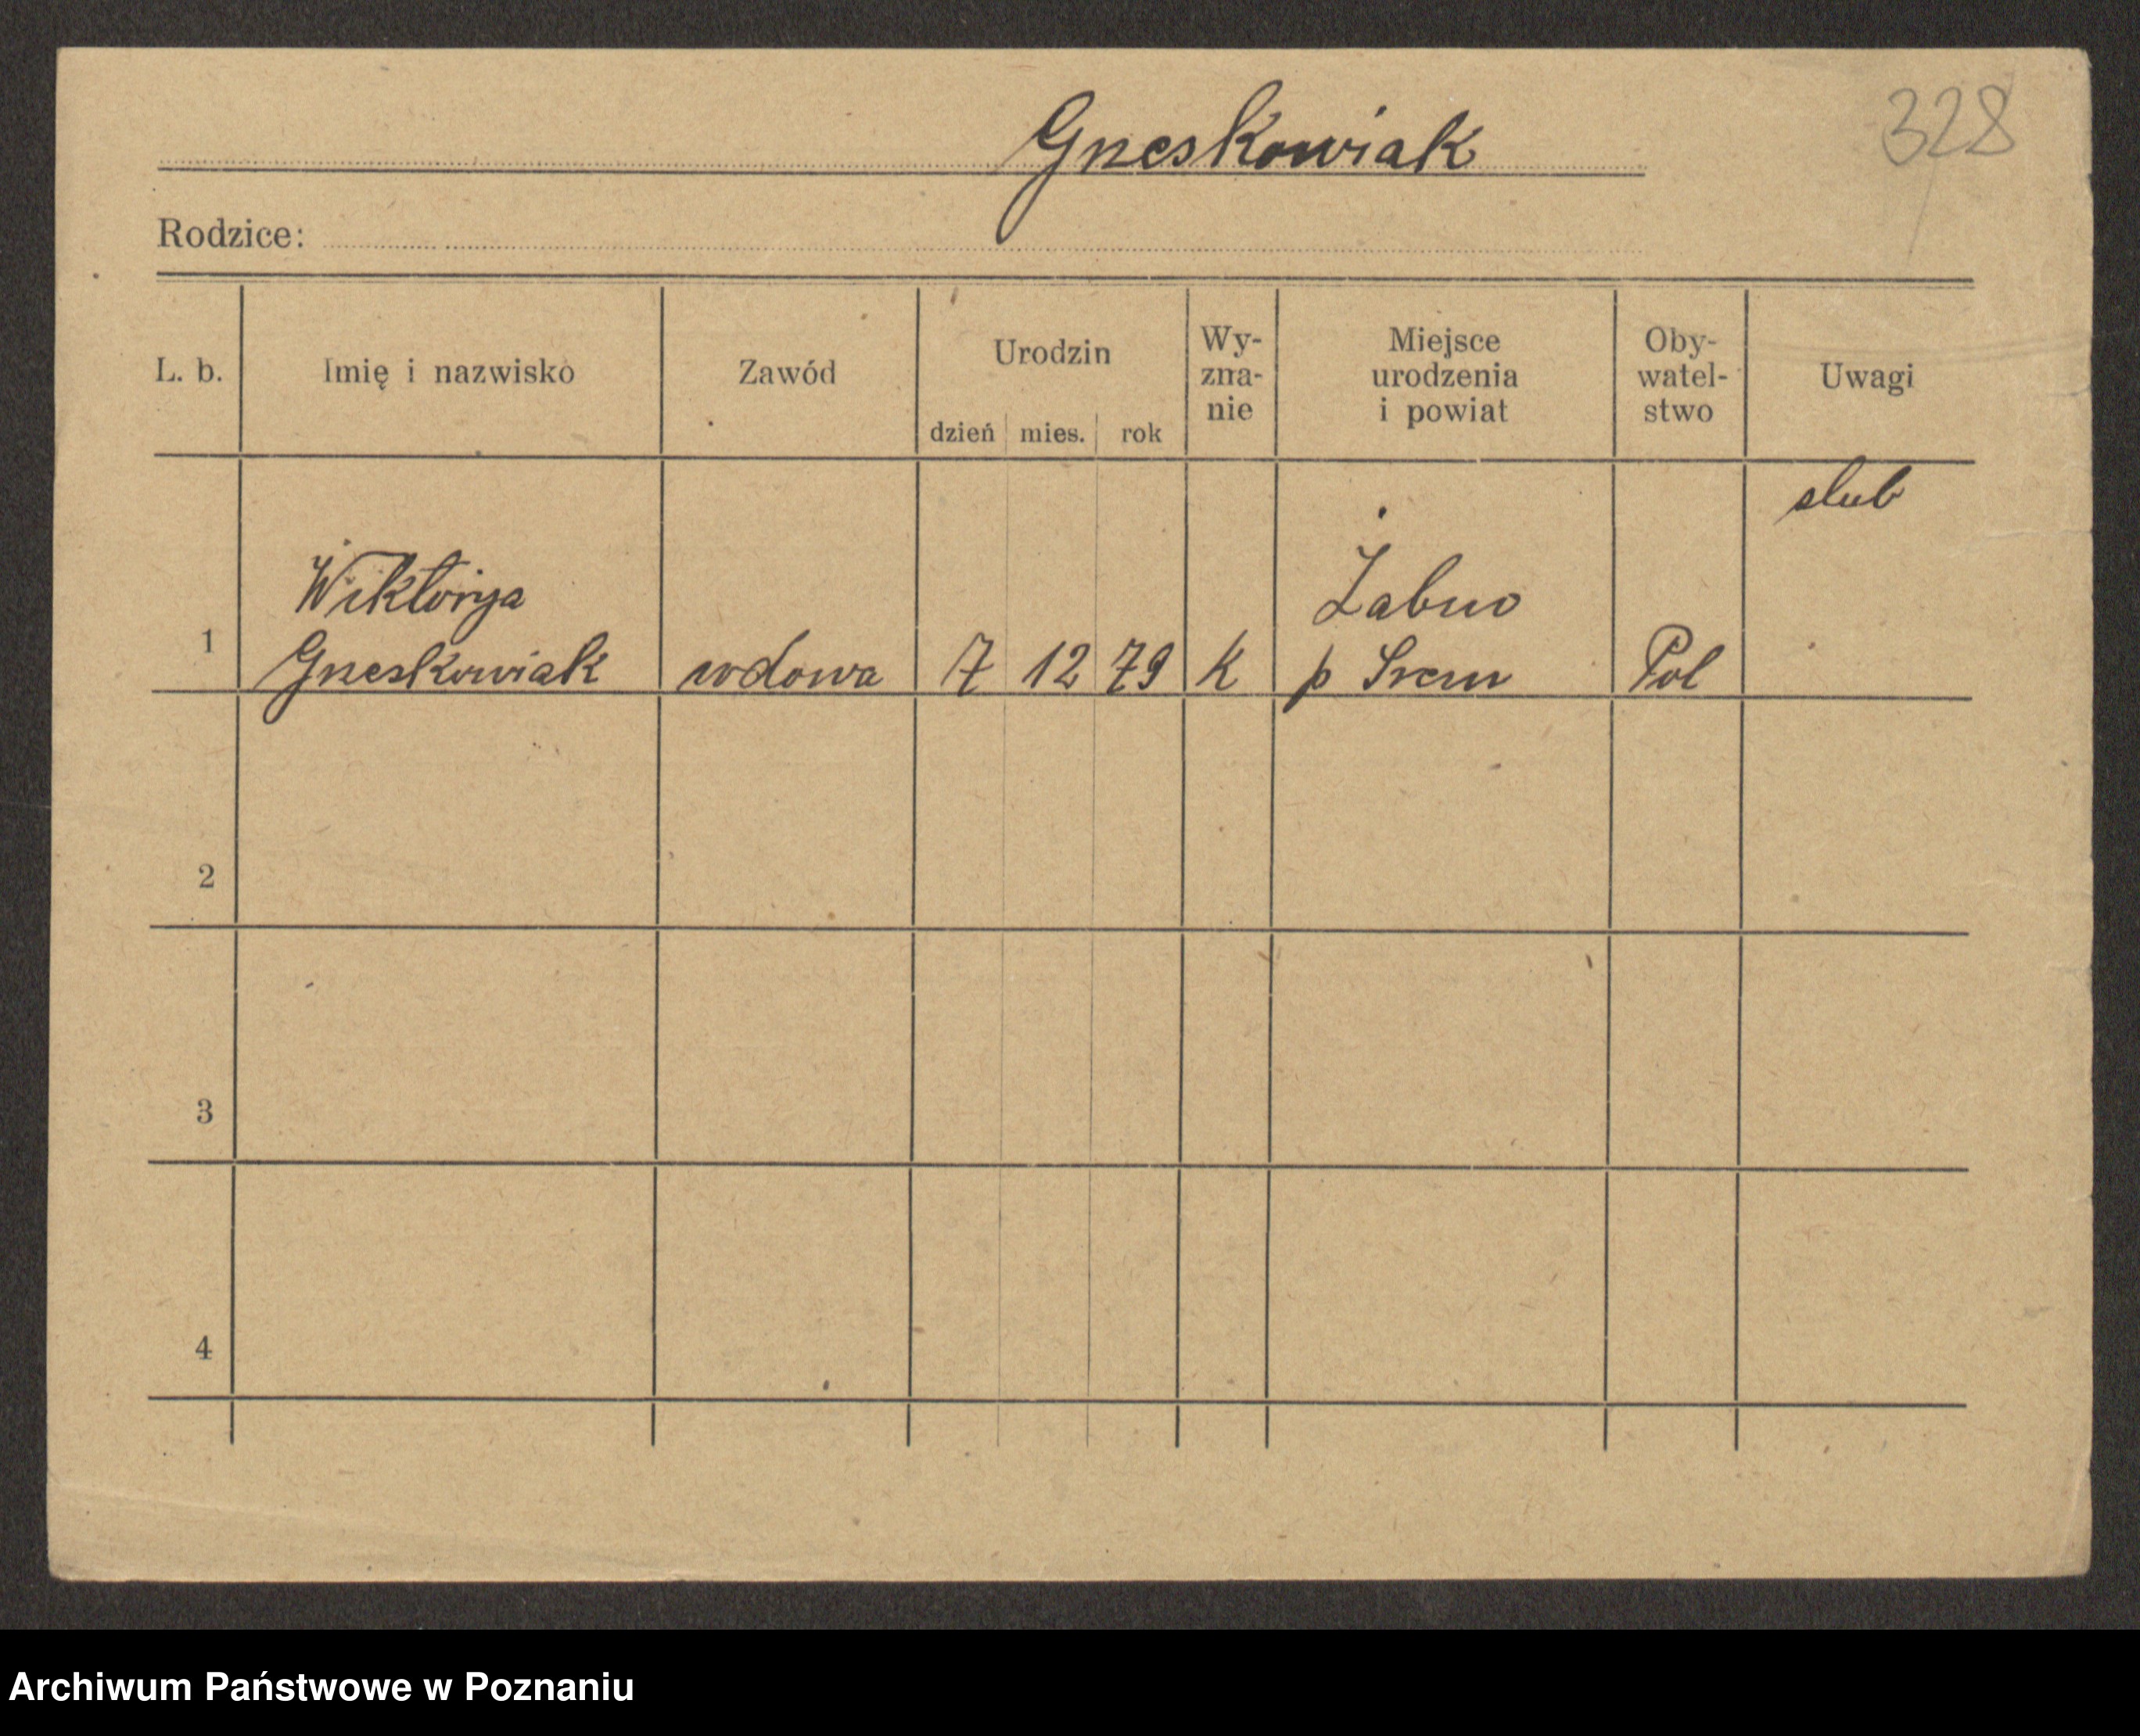 Gneskowiak
328
Rodzice:
L. b.
Imię i nazwisko
Zawód
Urodzin
dzień mies. rok
Wy-
zna-
nie
Miejsce
urodzenia
i powiat
Oby-
watel-
stwo
Uwagi
slub
1
Wiktorya
Gneskowiak
wdowa
7 12 79
K
Żabno
p Srem
Pol
2
3
4
Archiwum Państwowe w Poznaniu